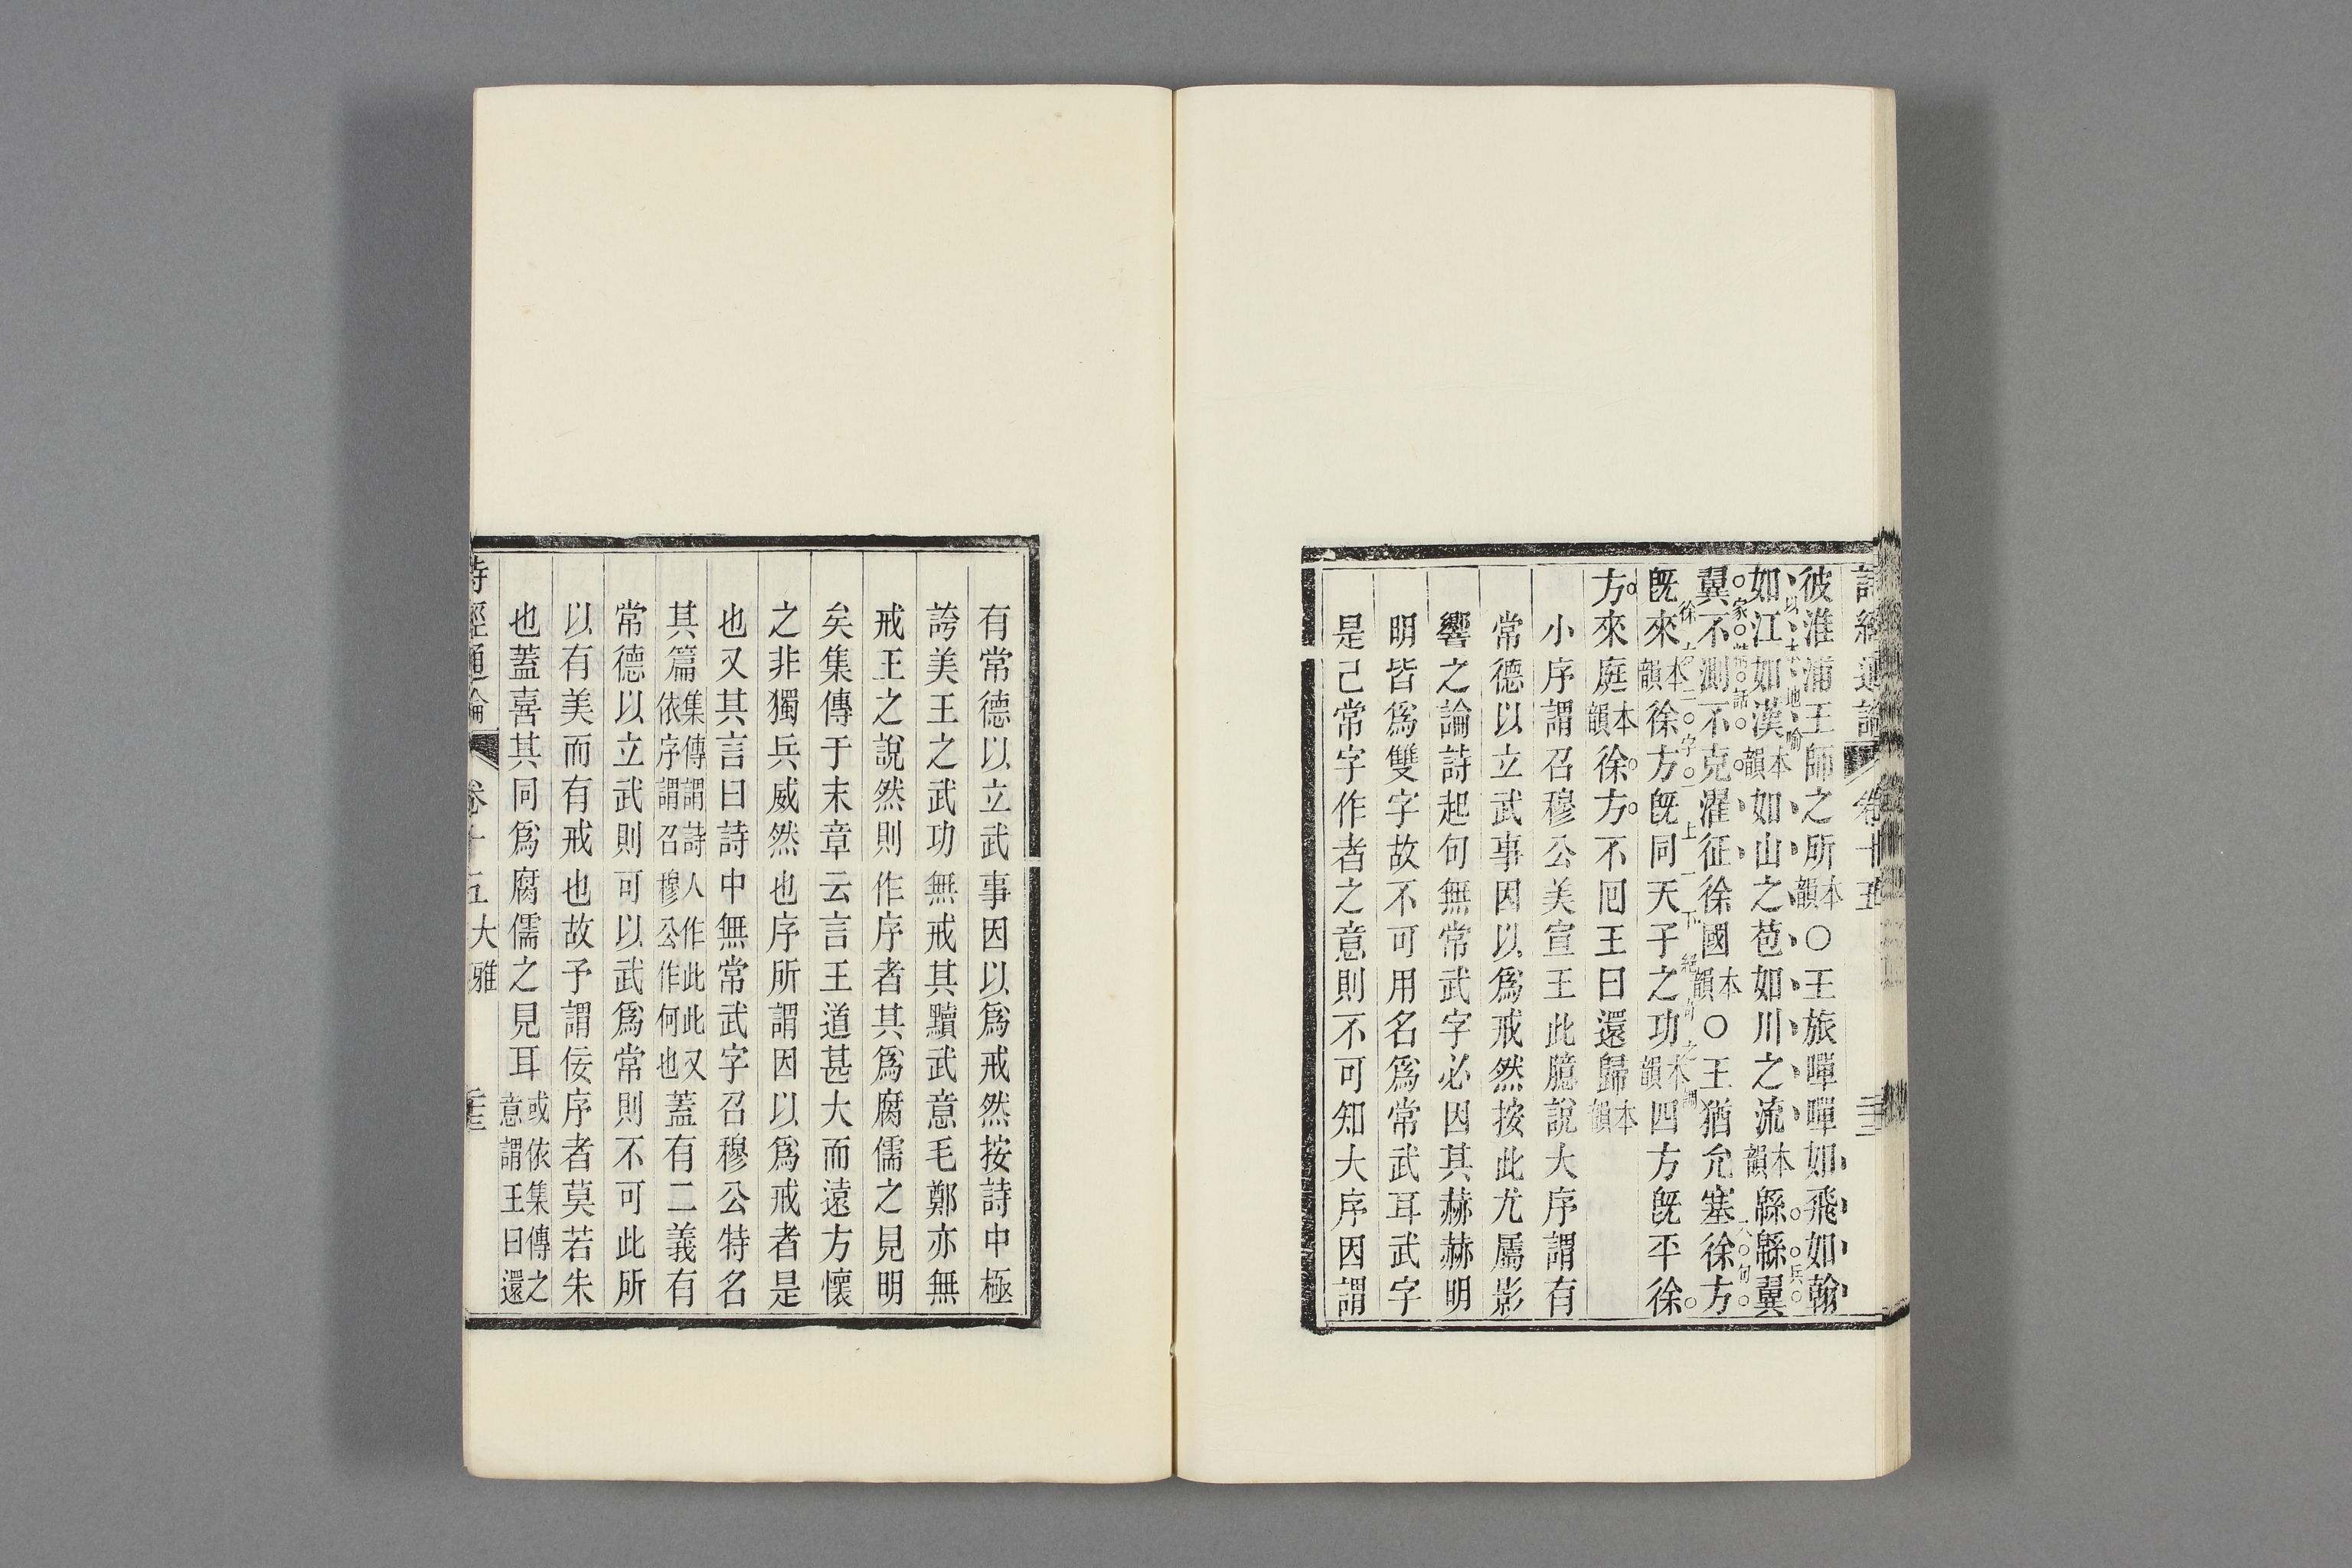 詩經通論 卷十五
彼淮浦王師之所本韻○王旅嘽嘽如飛如翰
如江如漢本韻如山之苞如川之流本韻緜緜翼
翼不測不克濯征徐國本韻○王猶允塞徐方
旣來本韻徐方旣同天子之功本韻四方旣平徐
方來庭本韻徐方不囘王曰還歸本韻
小序謂召穆公美宣王此臆說大序謂有
常德以立武事因以爲戒然按此尤屬影
響之論詩起句無常武字必因其赫赫明
明皆爲雙字故不可用名爲常武耳武字
是已常字作者之意則不可知大序因謂
有常德以立武事因以爲戒然按詩中極
誇美王之武功無戒其黷武意毛鄭亦無
戒王之說然則作序者其爲腐儒之見明
矣集傳于末章云言王道甚大而遠方懷
之非獨兵威然也序所謂因以爲戒者是
也又其言曰詩中無常武字召穆公特名
其篇集傳謂詩人作此此又依序謂召穆公作何也蓋有二義有
常德以立武則可以武爲常則不可此所
以有美而有戒也故予謂佞序者莫若朱
也蓋喜其同爲腐儒之見耳或依集傳之意謂王曰還
詩經通論 卷十五 大雅